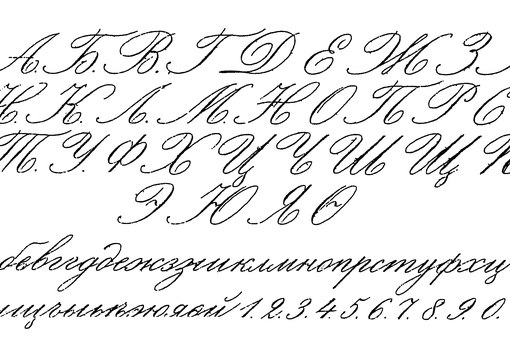 А. Б. В. Г Д Е Ж З.
К. Л. М. Н О П Р С
Т. У. Ф Х Ц Ч Ш Щ
Э Ю Я Ѳ
бвгдежзиклмнопрстуфхц
щъыьѣэюяѳѵ 1. 2. 3. 4. 5. 6. 7. 8. 9. 0.